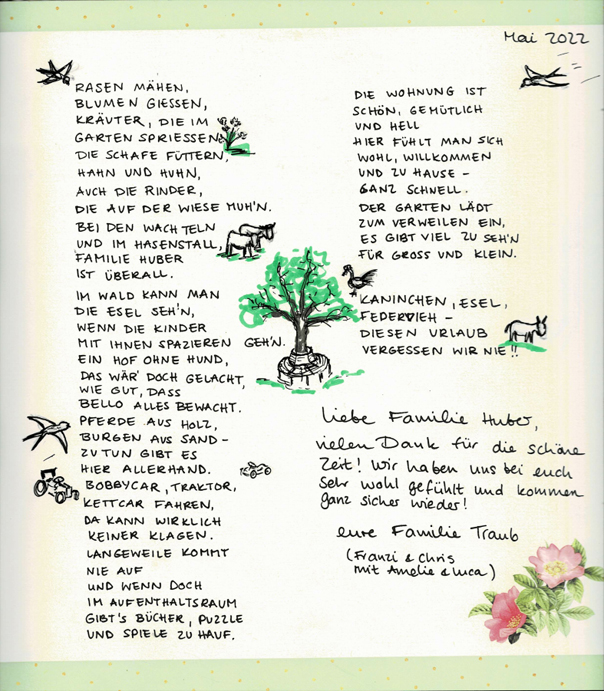 Mai 2022
RASEN MÄHEN,
BLUMEN GIESSEN,
KRÄUTER, DIE IM
GARTEN SPRIESSEN
DIE SCHAFE FÜTTERN,
HAHN UND HUHN,
AUCH DIE RINDER,
DIE AUF DER WIESE MUH'N.
BEI DEN WACHTELN
UND IM HASENSTALL,
FAMILIE HUBER
IST ÜBERALL.
IM WALD KANN MAN
DIE ESEL SEH'N,
WENN DIE KINDER
MIT IHNEN SPAZIEREN GEH'N.
EIN HOF OHNE HUND,
DAS WÄR' DOCH GELACHT,
WIE GUT, DASS
BELLO ALLES BEWACHT.
PFERDE AUS HOLZ,
BURGEN AUS SAND –
ZU TUN GIBT ES
HIER ALLERHAND.
BOBBYCAR, TRAKTOR,
KETTCAR FAHREN,
DA KANN WIRKLICH
KEINER KLAGEN.
LANGEWEILE KOMMT
NIE AUF
UND WENN DOCH
IM AUFENTHALTSRAUM
GIBT'S BÜCHER, PUZZLE
UND SPIELE ZU HAUF.
DIE WOHNUNG IST
SCHÖN, GEMÜTLICH
UND HELL
HIER FÜHLT MAN SICH
WOHL, WILLKOMMEN
UND ZU HAUSE –
GANZ SCHNELL.
DER GARTEN LÄDT
ZUM VERWEILEN EIN,
ES GIBT VIEL ZU SEH'N
FÜR GROSS UND KLEIN.
KANINCHEN, ESEL,
FEDERVIEH –
DIESEN URLAUB
VERGESSEN WIR NIE!!
Liebe Familie Huber,
vielen Dank für die schöne
Zeit! Wir haben uns bei euch
sehr wohl gefühlt und kommen
ganz sicher wieder!
eure Familie Traub
(Franzi & Chris
mit Amelie & Luca)